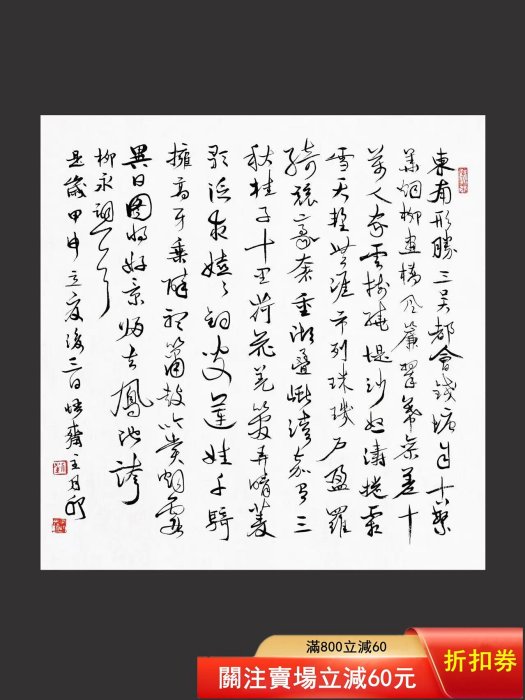 東南形勝三吳都會錢塘自古繁
華烟柳畫橋風簾翠幕參差十
萬人家雲樹繞堤沙怒濤捲霜
雪天塹無涯市列珠璣戶盈羅
綺競豪奢重湖疊巘清嘉有三
秋桂子十里荷花羌管弄晴菱
歌泛夜嬉々釣叟蓮娃千騎
擁高牙乘醉聽簫鼓吟賞烟霞
異日圖將好景歸去鳳池誇
柳永詞
是歲甲申立夏後三日悟齋主
滿800立減60
關注賣場立減60元
折扣券